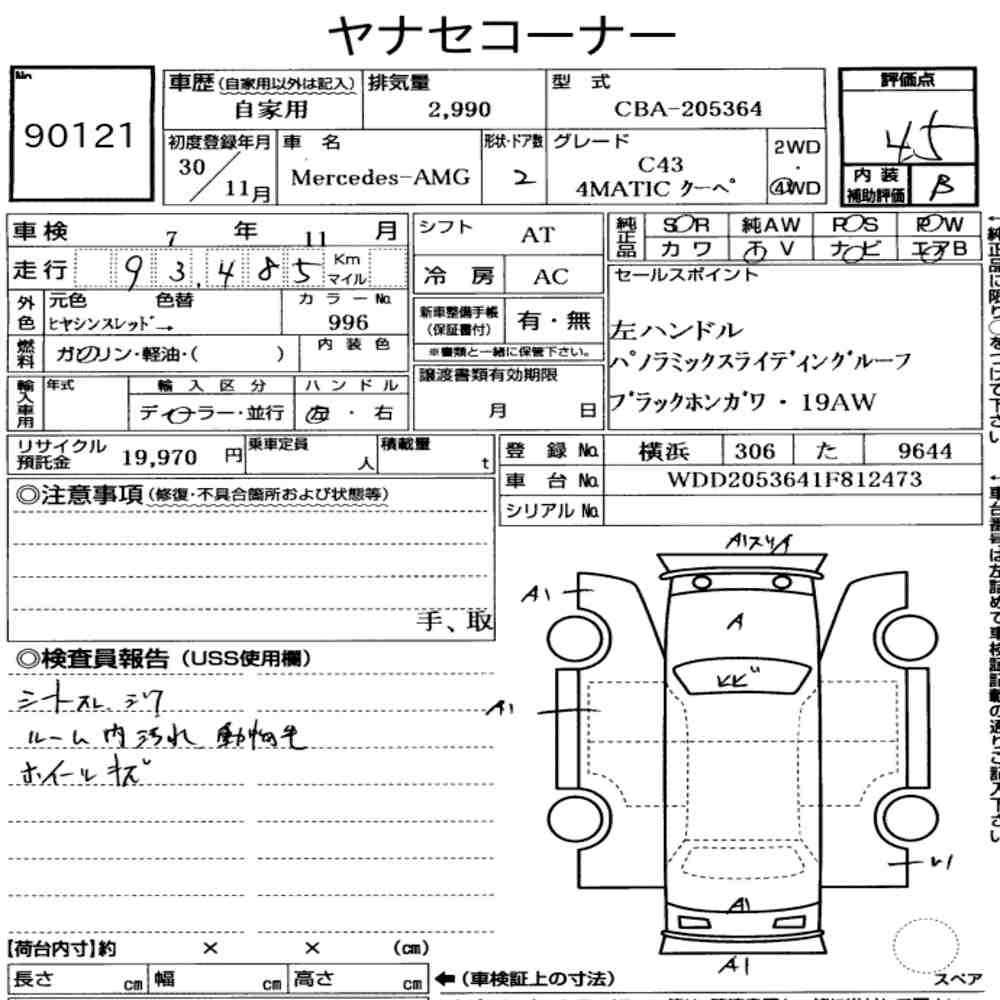 ヤナセコーナー
No.
90121
車歴(自家用以外は記入)
自家用
排気量
2,990
型 式
CBA-205364
評価点
4.5
初度登録年月
30
11月
車 名
Mercedes-AMG
形状・ドア数
2
グレード
C43
4MATIC クーペ
2WD
・
4WD
内 装
補助評価
B
車検
7
年
11
月
走行
93,485
Km
マイル
外色
元色
色替
ヒヤシンスレッド→
カラーNo.
996
燃料
ガソリン・軽油・( )
内 装 色
輸入車用
年式
輸 入 区 分
ディーラー・並行
ハ ン ド ル
左 ・ 右
シフト
AT
冷 房
AC
新車整備手帳
(保証書付)
有・無
※書類と一緒に保管下さい。
譲渡書類有効期限
月 日
純正品
S○R
純AW
P○S
P○W
カ ワ
T V
ナ ビ
エアB
セールスポイント
左ハンドル
パノラミックスライディングルーフ
ブラックホンガワ・19AW
リサイクル
預託金
19,970
円
乗車定員
人
積載量
t
登 録 No.
横浜
306
た
9644
車 台 No.
WDD2053641F812473
シリアル No.
◎注意事項(修復・不具合箇所および状態等)
手、取
◎検査員報告(USS使用欄)
シートスレ シワ
ルーム内汚れ 動物毛
ホイールキズ
A1スリキ
A1
A
A1
A1
A1
【荷台内寸】約 × × (cm)
長さ cm
幅 cm
高さ cm
←(車検証上の寸法)
スペア
←純正品に限り○をつけて下さい
←車台番号は左詰めで車検証記載の通りご記入下さい